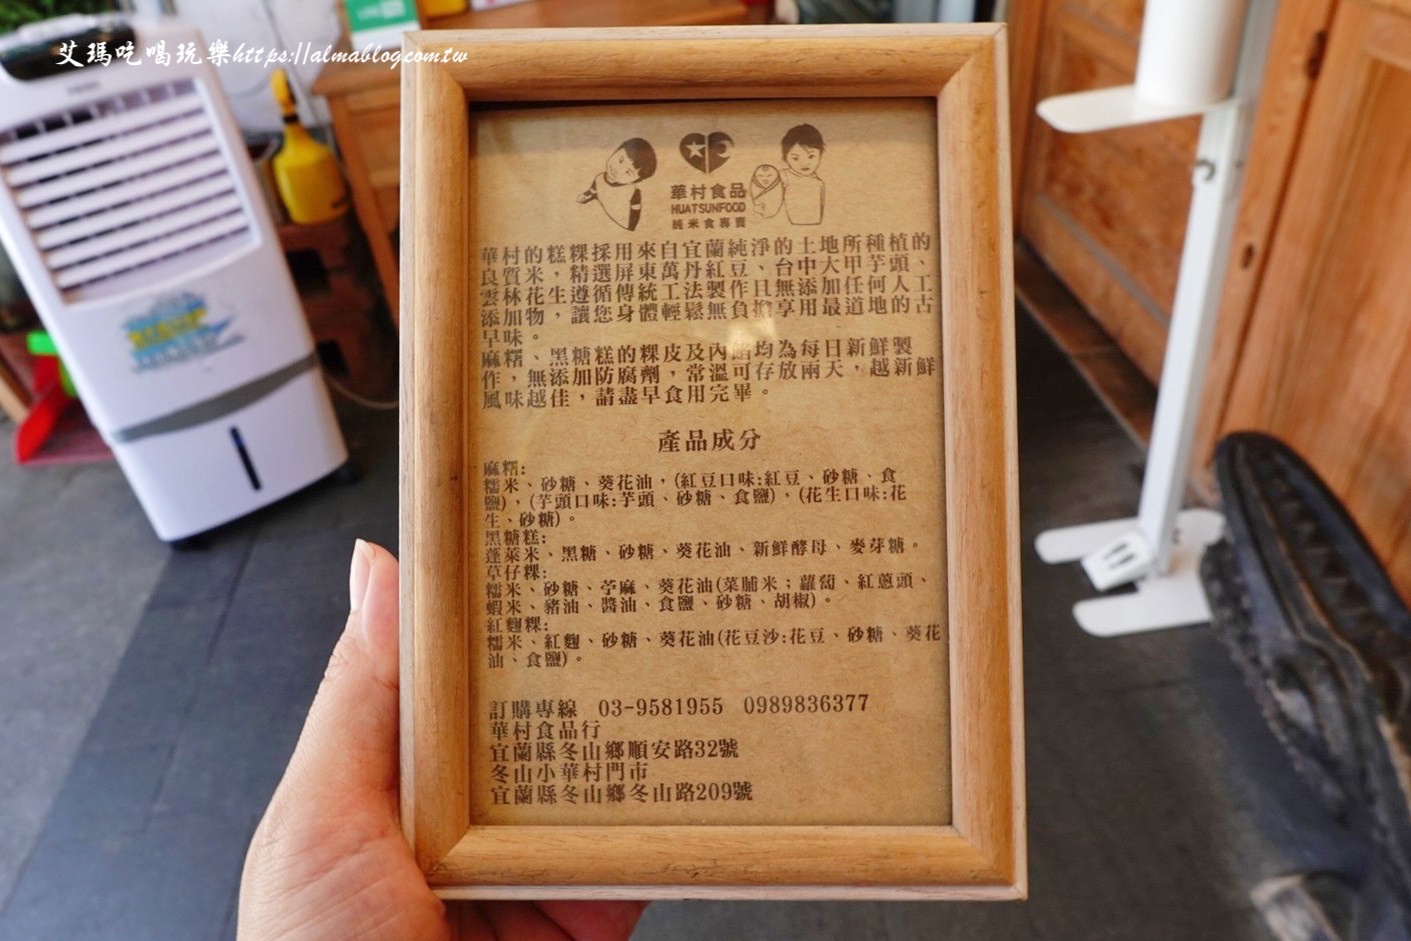 艾瑪吃喝玩樂https://almablog.com.tw
華村食品
HUATSUNFOOD
純米食專賣
華村的糕粿採用來自宜蘭純淨的土地所種植的
良質米，精選屏東萬丹紅豆、台中大甲芋頭、
雲林花生遵循傳統工法製作且無添加任何人工
添加物，讓您身體輕鬆無負擔享用最道地的古
早味。
麻糬、黑糖糕的粿皮及內餡均為每日新鮮製
作，無添加防腐劑，常溫可存放兩天，越新鮮
風味越佳，請盡早食用完畢。
產品成分
麻糬:
糯米、砂糖、葵花油，(紅豆口味:紅豆、砂糖、食
鹽)，(芋頭口味:芋頭、砂糖、食鹽)，(花生口味:花
生、砂糖)。
黑糖糕:
蓬萊米、黑糖、砂糖、葵花油、新鮮酵母、麥芽糖。
草仔粿:
糯米、砂糖、苧麻、葵花油(菜脯米；蘿蔔、紅蔥頭、
蝦米、豬油、醬油、食鹽、砂糖、胡椒)。
紅麴粿:
糯米、紅麴、砂糖、葵花油(花豆沙:花豆、砂糖、葵花
油、食鹽)。
訂購專線 03-9581955 0989836377
華村食品行
宜蘭縣冬山鄉順安路32號
冬山小華村門市
宜蘭縣冬山鄉冬山路209號